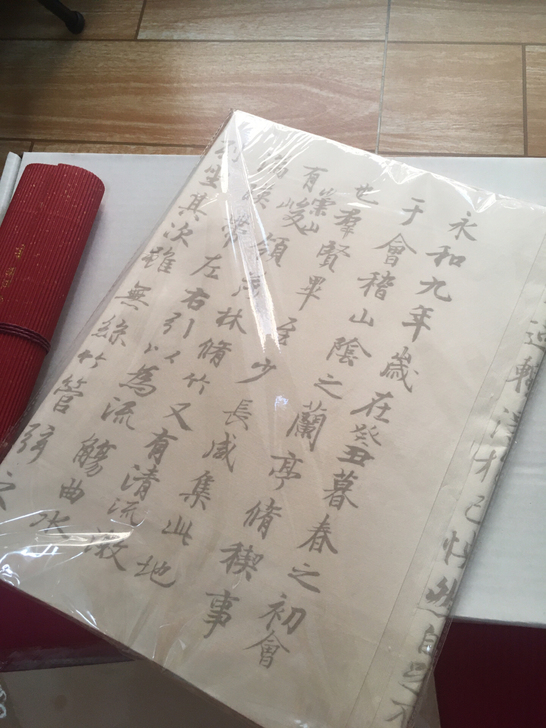 永和九年歲在癸丑暮春之初會
于會稽山陰之蘭亭脩稧事
也羣賢畢至少長咸集此地
有崇山峻領茂林脩竹又有清流激
湍暎帶左右引以為流觴曲水
列坐其次雖無絲竹管弦之
遇暫得於己怏然自足不